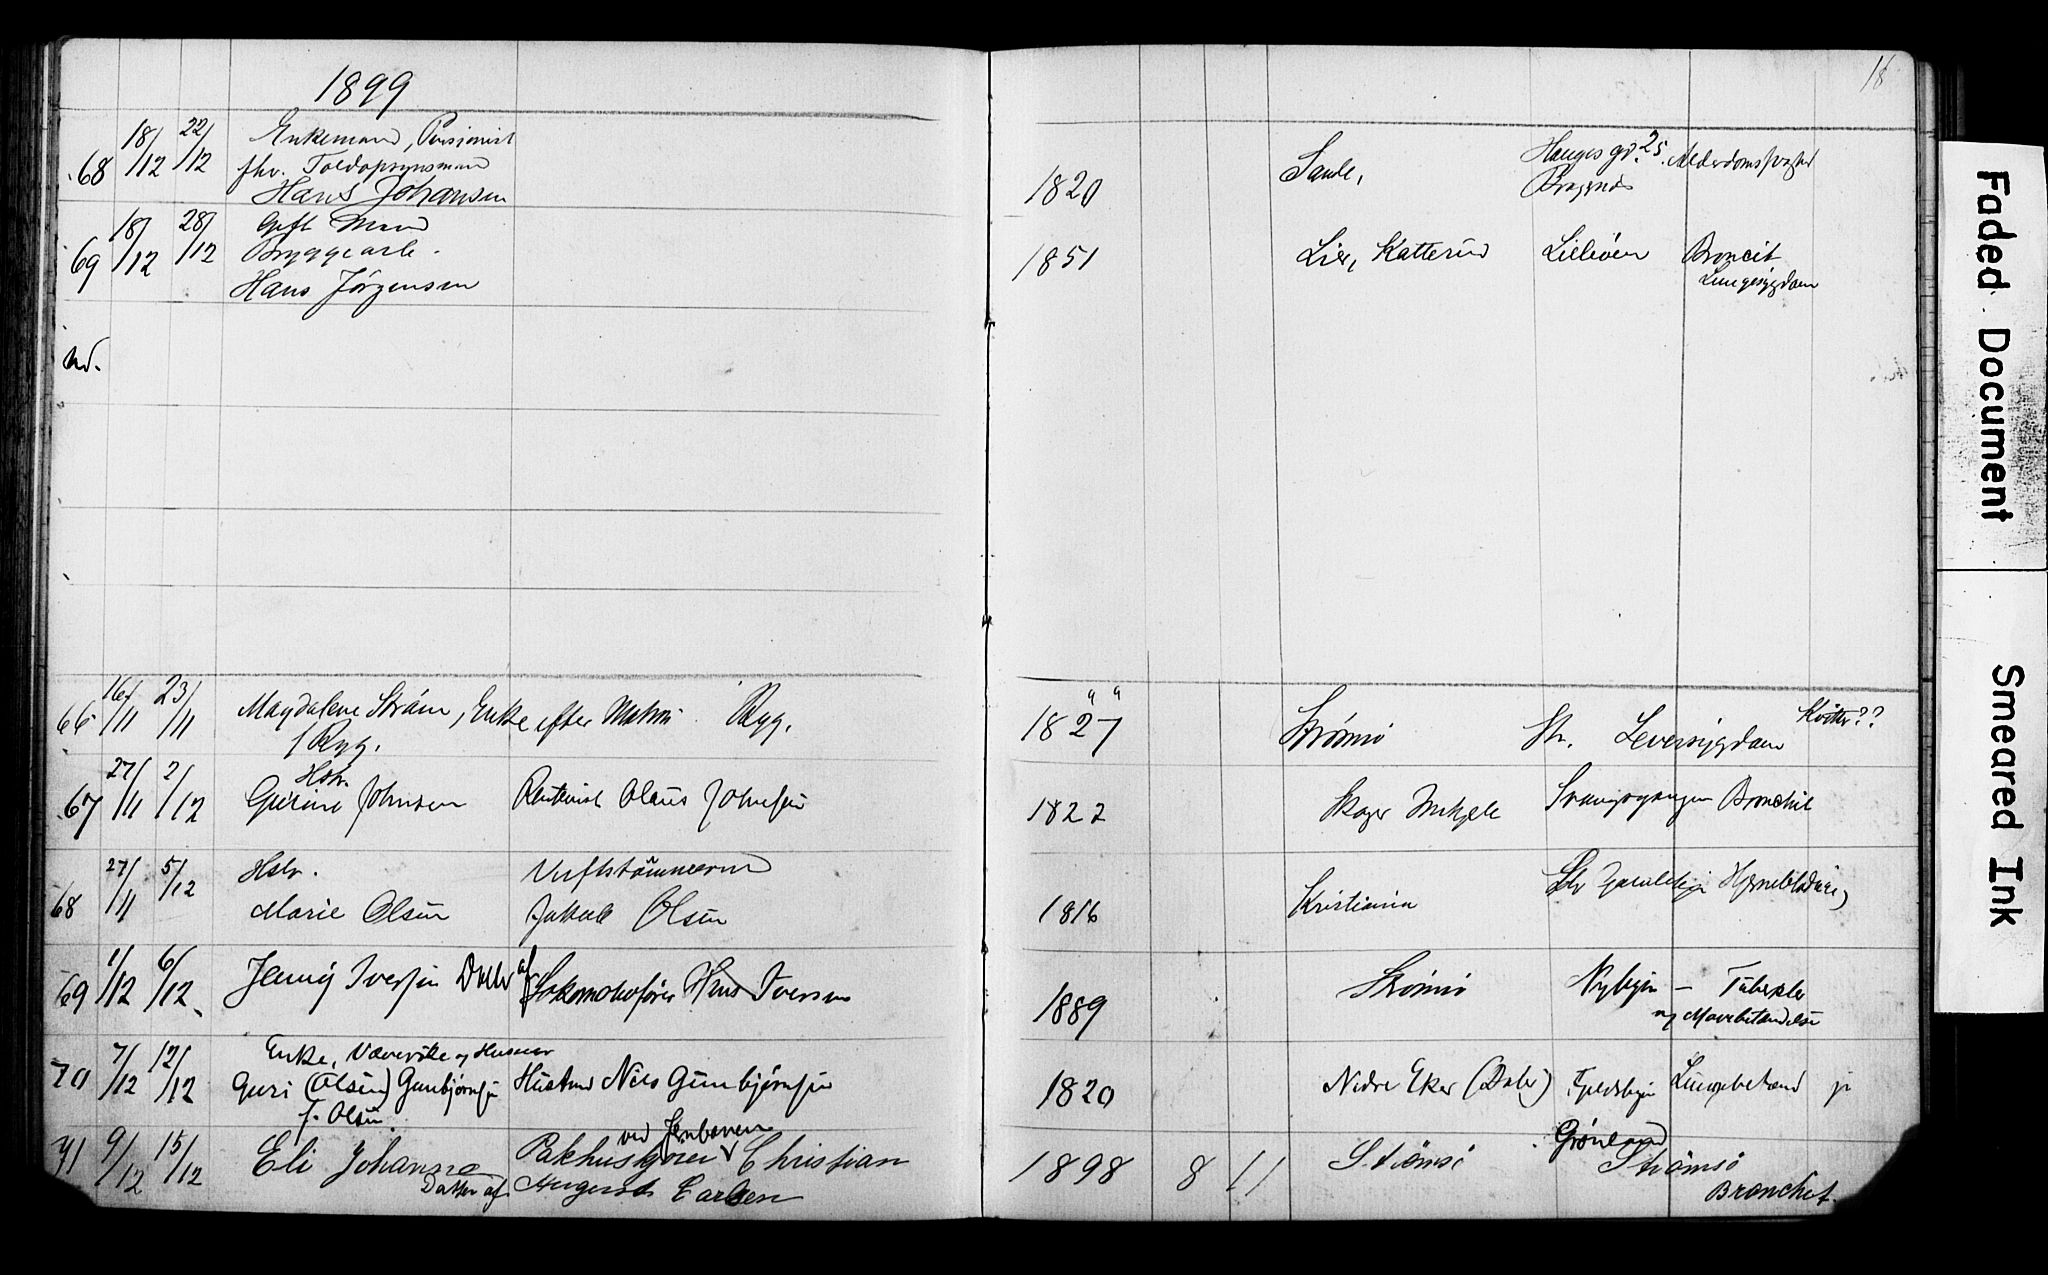 1899
18
68 18/12 22/12 Enkemand, Pensionist
fhv. Toldopsynsmand
Hans Johansen
1820 Sande, Hauges gd. 25. Alderdomssvaghed
Bragernæs
69 18/12 28/12 Gift Mand
Bryggearb.
Hans Jørgensen
1851 Lier, Katterud Lilleøen Broncit
Lungesygdom
Kd.
66 16/11 23/11 Magdalene Strøm, Enke efter Ryg.
f. Ryg.
1827 " " Strømsø Str. Leversygdom
Kræft??
67 27/11 2/12 Hstr.
Gurine Johnsen Olaus Johnsen
1822 Skoger Bronchit
68 27/11 5/12 Hstr. Verftstømmermand
Marie Olsen Jakob Olsen
1816 Kristiania Hjerneblødning
69 1/12 6/12 Jenny Iversen Datter af Lokomotivfører Hans Iversen
1889 Strømsø Nybyen – Tuberkler
og Mavebetændelse
70 7/12 12/12 Enke, Væverske og Husmor
Guri (Olsen) Gunbjørnsen Husmand Nils Gunbjørnsen
f. Olsen.
1820 Nedre Eker (Daler) Lungebetænd ja
71 9/12 15/12 Eli Johanna Pakhusskriver ved Jernbanen Christian
Datter af August Carlsen
1898 8 11 Strømsø Grønland Strømsø
Bronchit.
Faded Document
Smeared Ink